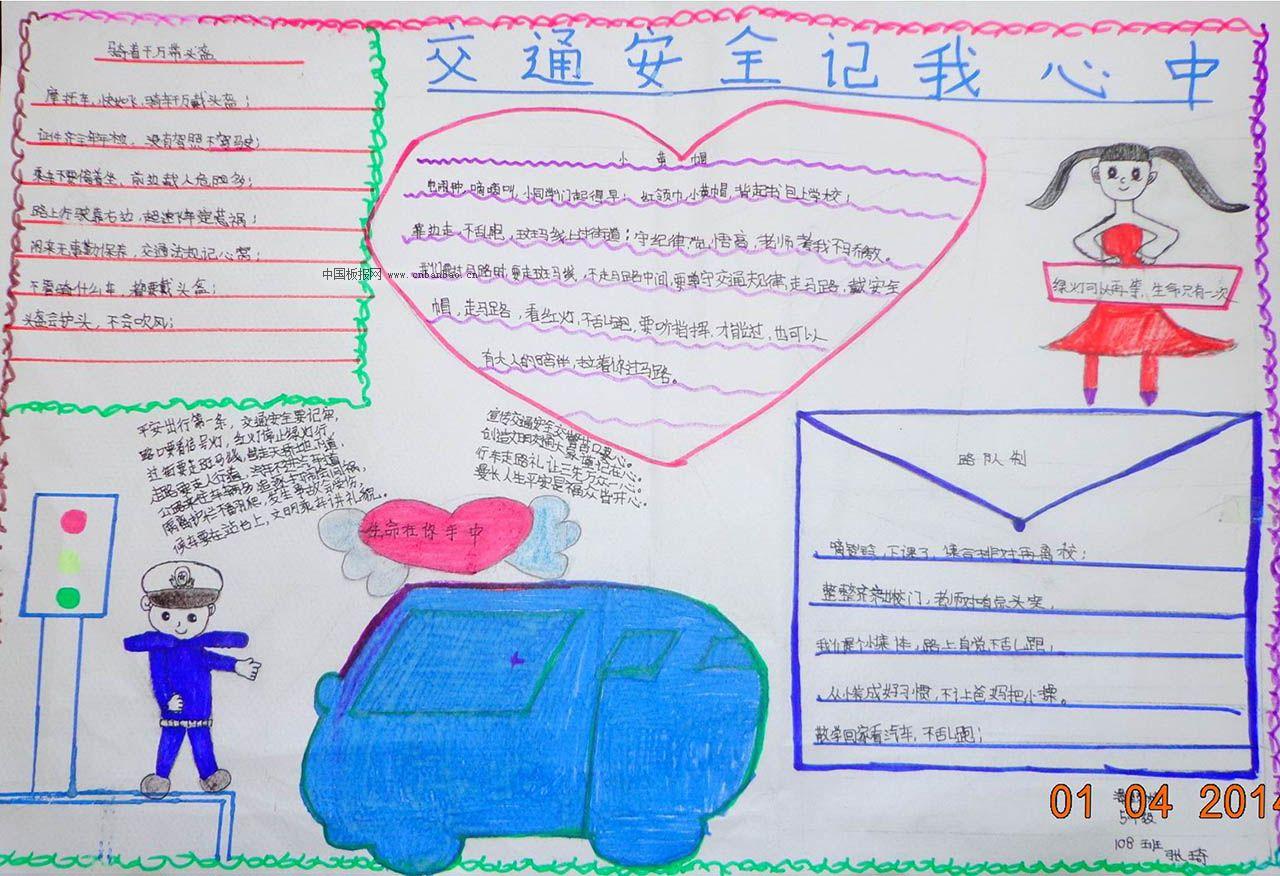 交通安全记我心中
骑着千万带头盔
摩托车,快如飞,骑车千万戴头盔;
证件齐全年年检,没有驾照不驾驶;
乘车不要倚着坐,前边载人危险多;
路上行驶靠右边,超速飞车定惹祸;
闲来无事勤保养,交通法规记心窝;
不管骑什么车,都要戴头盔;
头盔会护头,不会吹风;
中国板报网 www.cnbanbao.cn
小黄帽
电闹钟,嘀嘀叫,小同学们起得早;红领巾,小黄帽,背起书包上学校;
靠边走,不乱跑,斑马线上过街道;守纪律,觉悟高,老师夸我不骄傲。
我们最过马路时,要走斑马线,不走马路中间,要遵守交通规律,走马路,戴安全
帽,走马路,看红灯,不乱跑,要听指挥,才能过,也可以
有大人的陪伴,拉着你过马路。
绿灯可以再等,生命只有一次
平安出行第一条,交通安全要记牢,
路口要看信号灯,红灯停止绿灯行,
过街要走斑马线,或走天桥地下道,
走路要走人行道,
公路来往车辆多,追逐
隔离护栏不翻爬,发生事故会受伤,
候车要在站台上,文明乘车讲礼貌。
宣传交通安全
创造文明交通
行车走路礼让三先
漫长人生平安是福众皆开心。
生命在你手中
路队制
嘀铃铃,下课了,集合排好再离校;
整整齐齐出校门,老师对咱点头笑,
我们是个小集体,路上自觉不乱跑,
从小养成好习惯,不让爸妈把心操。
放学回家看汽车,不乱跑;
01 04 2014
108班 张琦